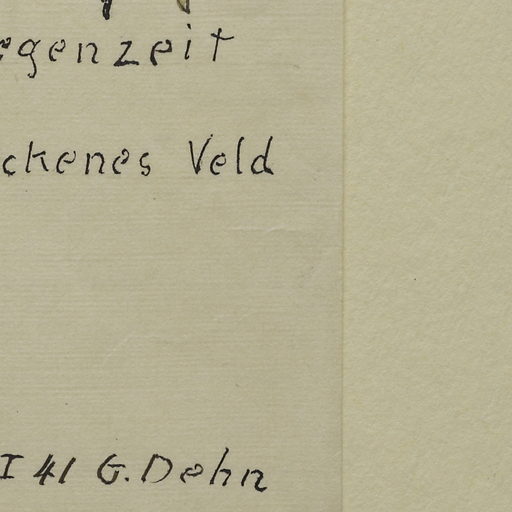 egenzeit
ckenes Veld
I 41 G. Dehn